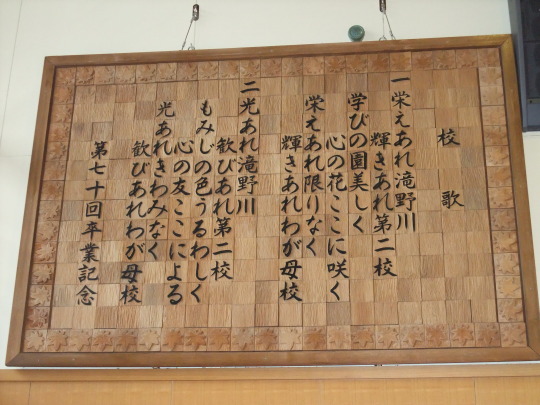 校歌
一 栄えあれ滝野川
輝きあれ第二校
学びの園美しく
心の花ここに咲く
栄えあれ限りなく
輝きあれわが母校
二 光あれ滝野川
歓びあれ第二校
もみじの色うるわしく
心の友ここによる
光あれきわみなく
歓びあれわが母校
第七十回卒業記念